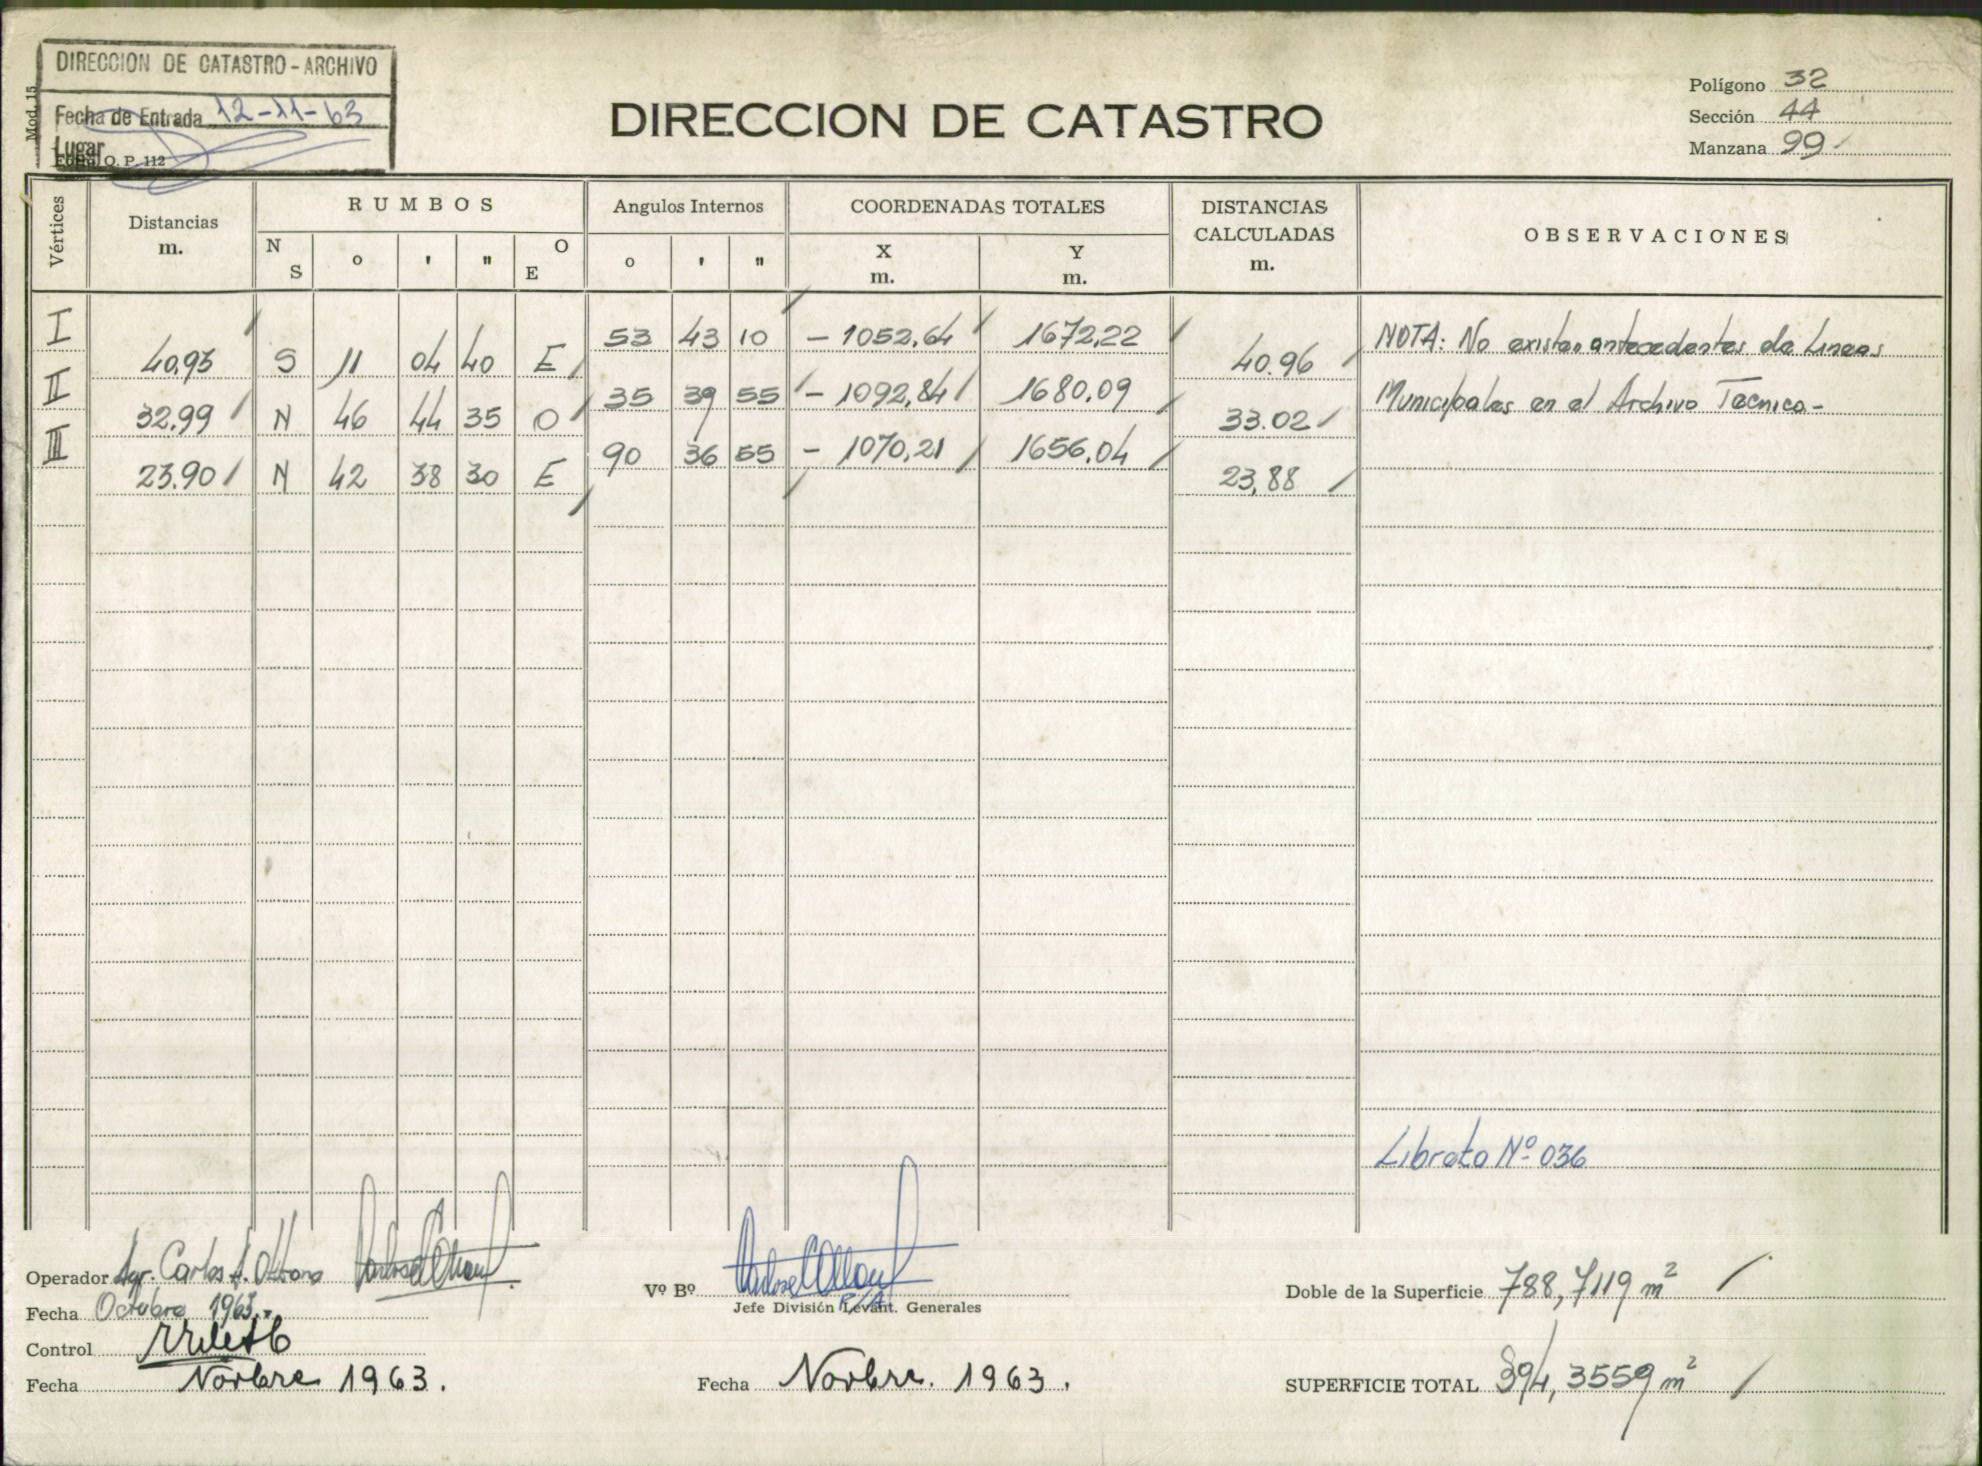 DIRECCION DE CATASTRO - ARCHIVO
Fecha de Entrada 12-11-63
Lugar
Mod. 15
O. P. 112
DIRECCION DE CATASTRO
Polígono 32
Sección 44
Manzana 99
Vértices
Distancias
m.
RUMBOS
N S
o
'
"
O E
Angulos Internos
o
'
"
COORDENADAS TOTALES
X
m.
Y
m.
DISTANCIAS
CALCULADAS
m.
OBSERVACIONES
I 53 43 10 - 1052,64 1672,22
40,93 S 11 04 40 E 40.96
II 35 39 55 - 1092,84 1680,09
32,99 N 46 44 35 O 33.02
III 90 36 55 - 1070,21 1656,04
23.90 N 42 38 30 E 23,88
NOTA: No existen antecedentes de Lineas
Municipales en el Archivo Tecnico -
Libreta Nº 036
Operador Agr. Carlos A.
Fecha Octubre 1963.-
Control
Fecha Novbre 1963.
Vº Bº
Jefe División Levant. Generales
Fecha Novbre. 1963.
Doble de la Superficie 788,7119 m²
SUPERFICIE TOTAL 394,3559 m²